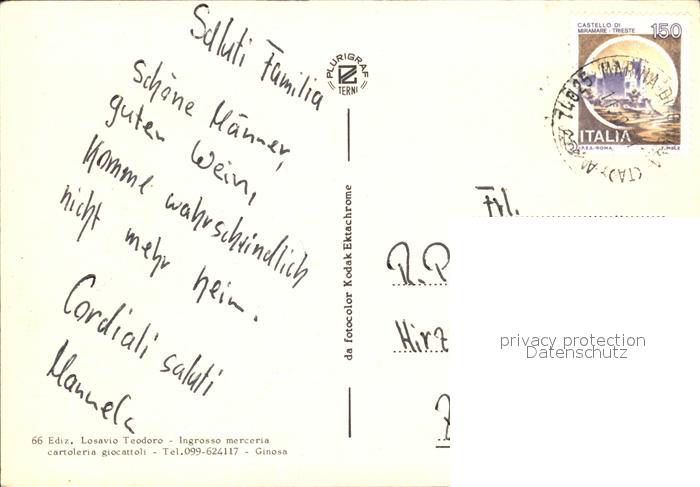 Saluti Familia
Schöne Männer,
guten Wein,
komme wahrscheindlich
nicht mehr heim.
Cordiali saluti
Manuela
66 Ediz. Losavio Teodoro - Ingrosso merceria
cartoleria giocattoli - Tel.099-624117 - Ginosa
PLURIGRAF
TERNI
da fotocolor Kodak Ektachrome
CASTELLO DI
MIRAMARE - TRIESTE
150
ITALIA
I.P.Z.S.-ROMA
74025 MARINA DI
(TA)
Frl.
R. P
Hirz
privacy protection
Datenschutz